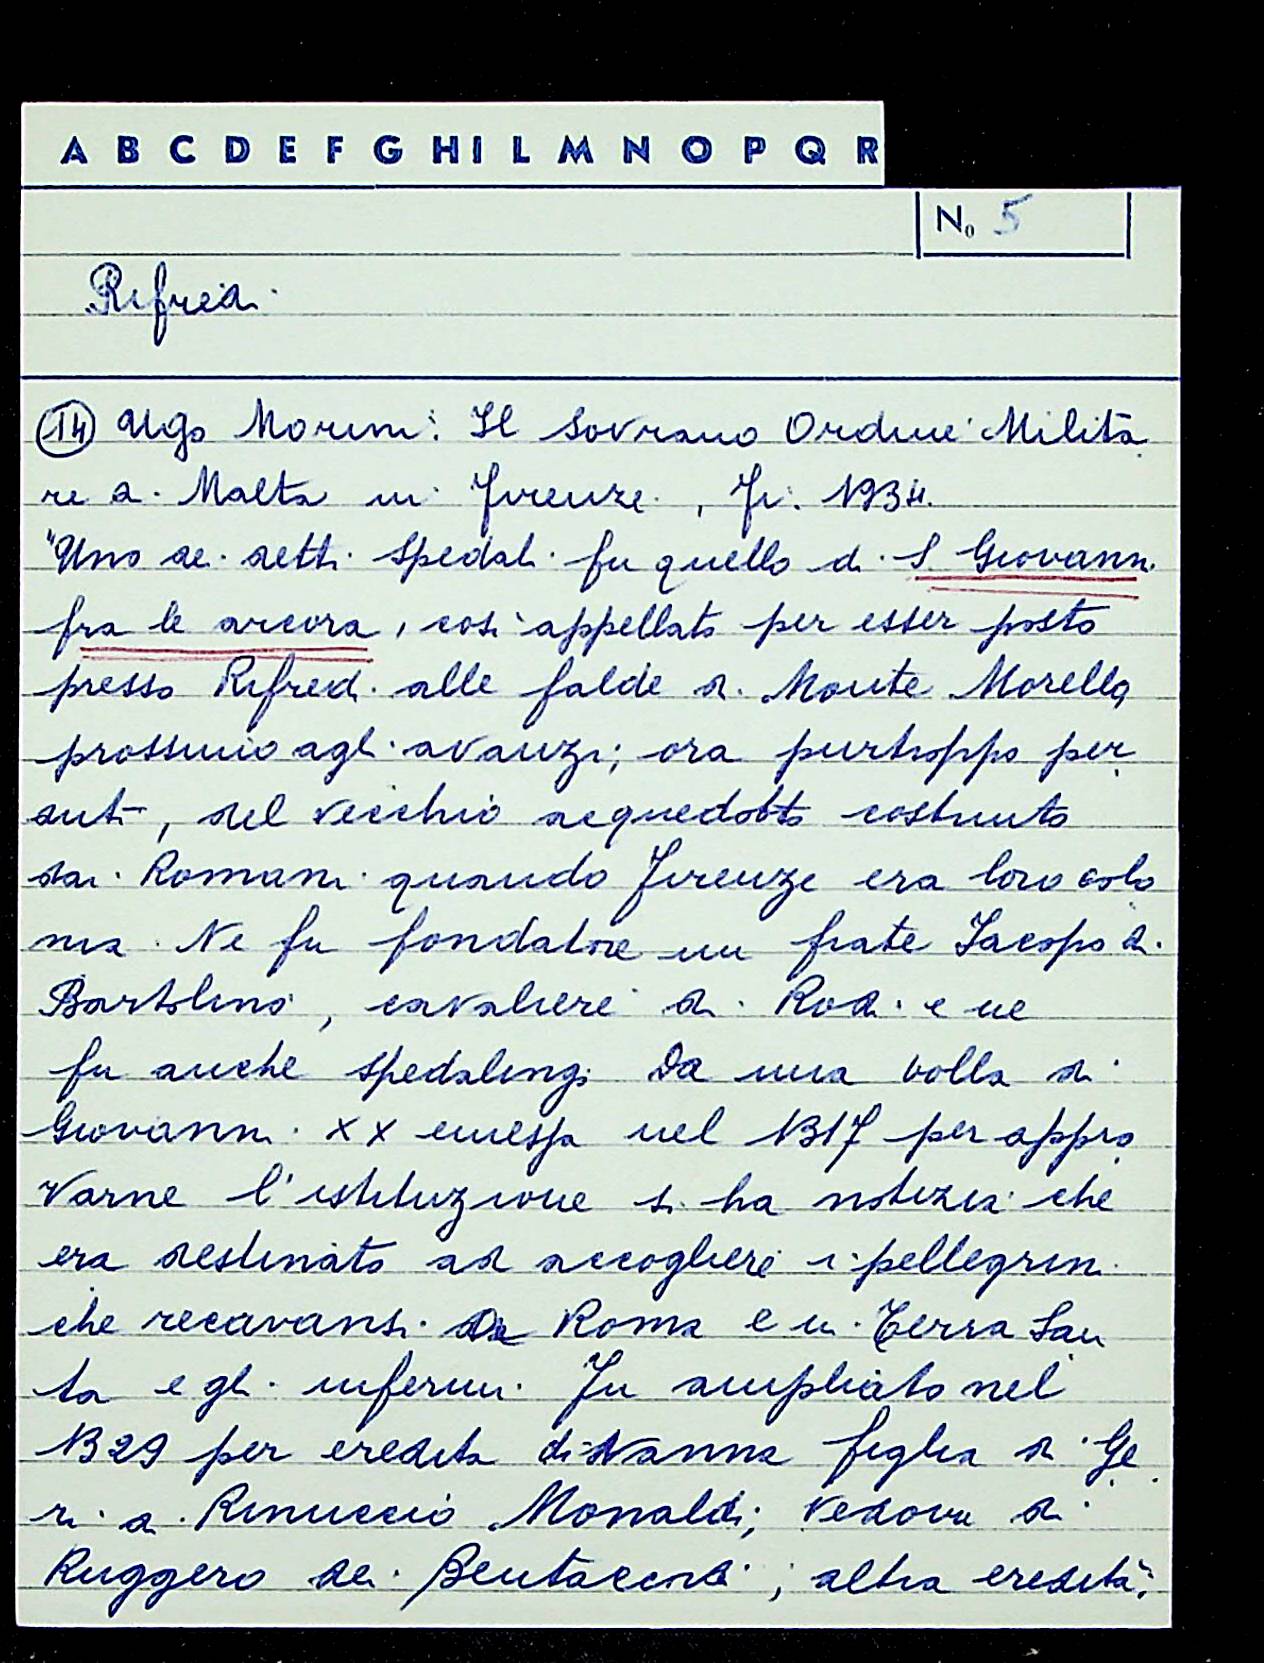 A B C D E F G H I L M N O P Q R
No 5
Rifredi
14 Ugo Morini: Il Sovrano Ordine Milita
re di Malta in Firenze, Fi. 1934.
"Uno dei detti spedali fu quello di S. Giovanni
fra le arcora, così appellato per esser posto
presso Rifredi alle falde di Monte Morello
prossimo agli avanzi, ora purtroppo per
duti, del vecchio acquedotto costruito
dai Romani quando Firenze era loro colo
nia. Ne fu fondatore un frate Jacopo di
Bartolino, cavaliere di Rodi e ne
fu anche spedalingo. Da una bolla di
Giovanni XX emessa nel 1317 per appro
varne l'istituzione si ha notizia che
era destinato ad accogliere i pellegrini
che recavansi Roma e in Terra San
ta e gli infermi. Fu ampliato nel
1329 per eredità di Vanna figlia di Ge
ri di Rinuccio Monaldi, vedova di
Ruggero dei Bentaccordi; altra eredità